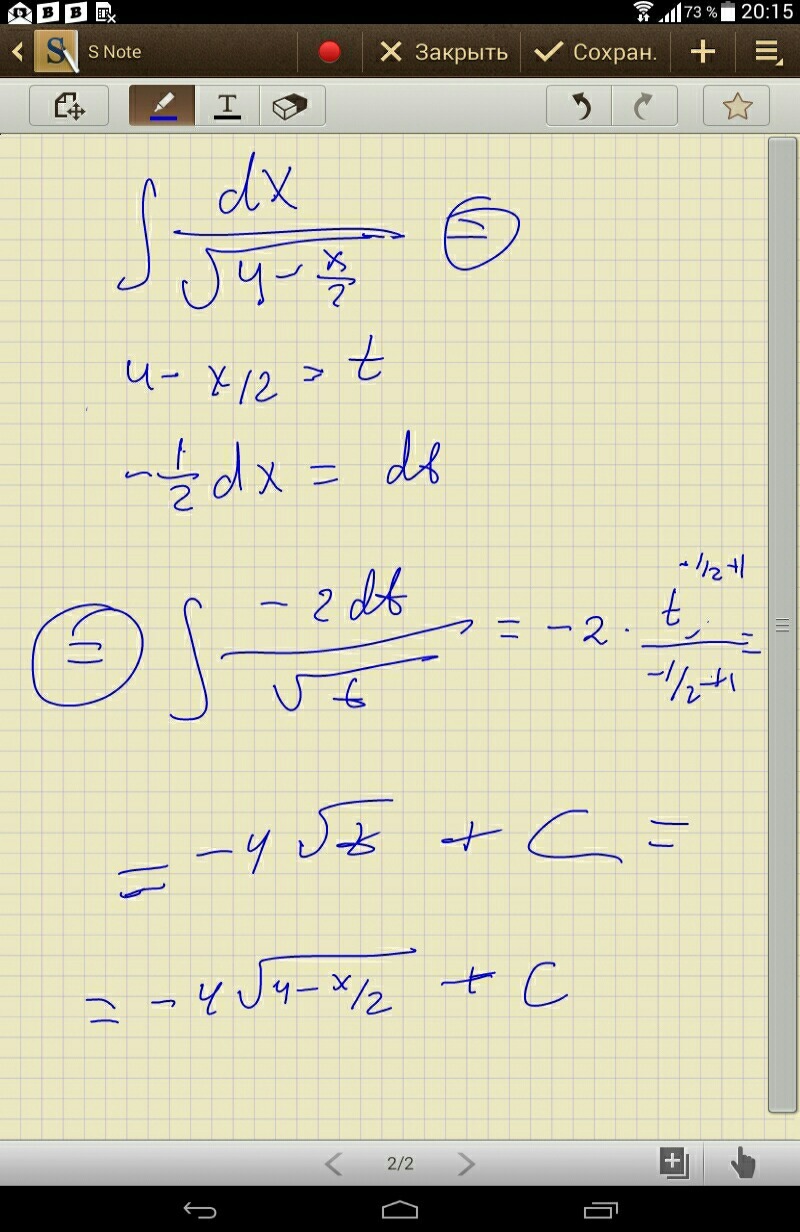 73 % 20:15
S Note Закрыть Сохран.
T
∫ dx / √(4 - x/2) =
4 - x/2 = t
-1/2 dx = dt
= ∫ -2dt / √t = -2 · t^(-1/2+1) / (-1/2+1) =
= -4√t + C =
= -4√(4 - x/2) + C
2/2